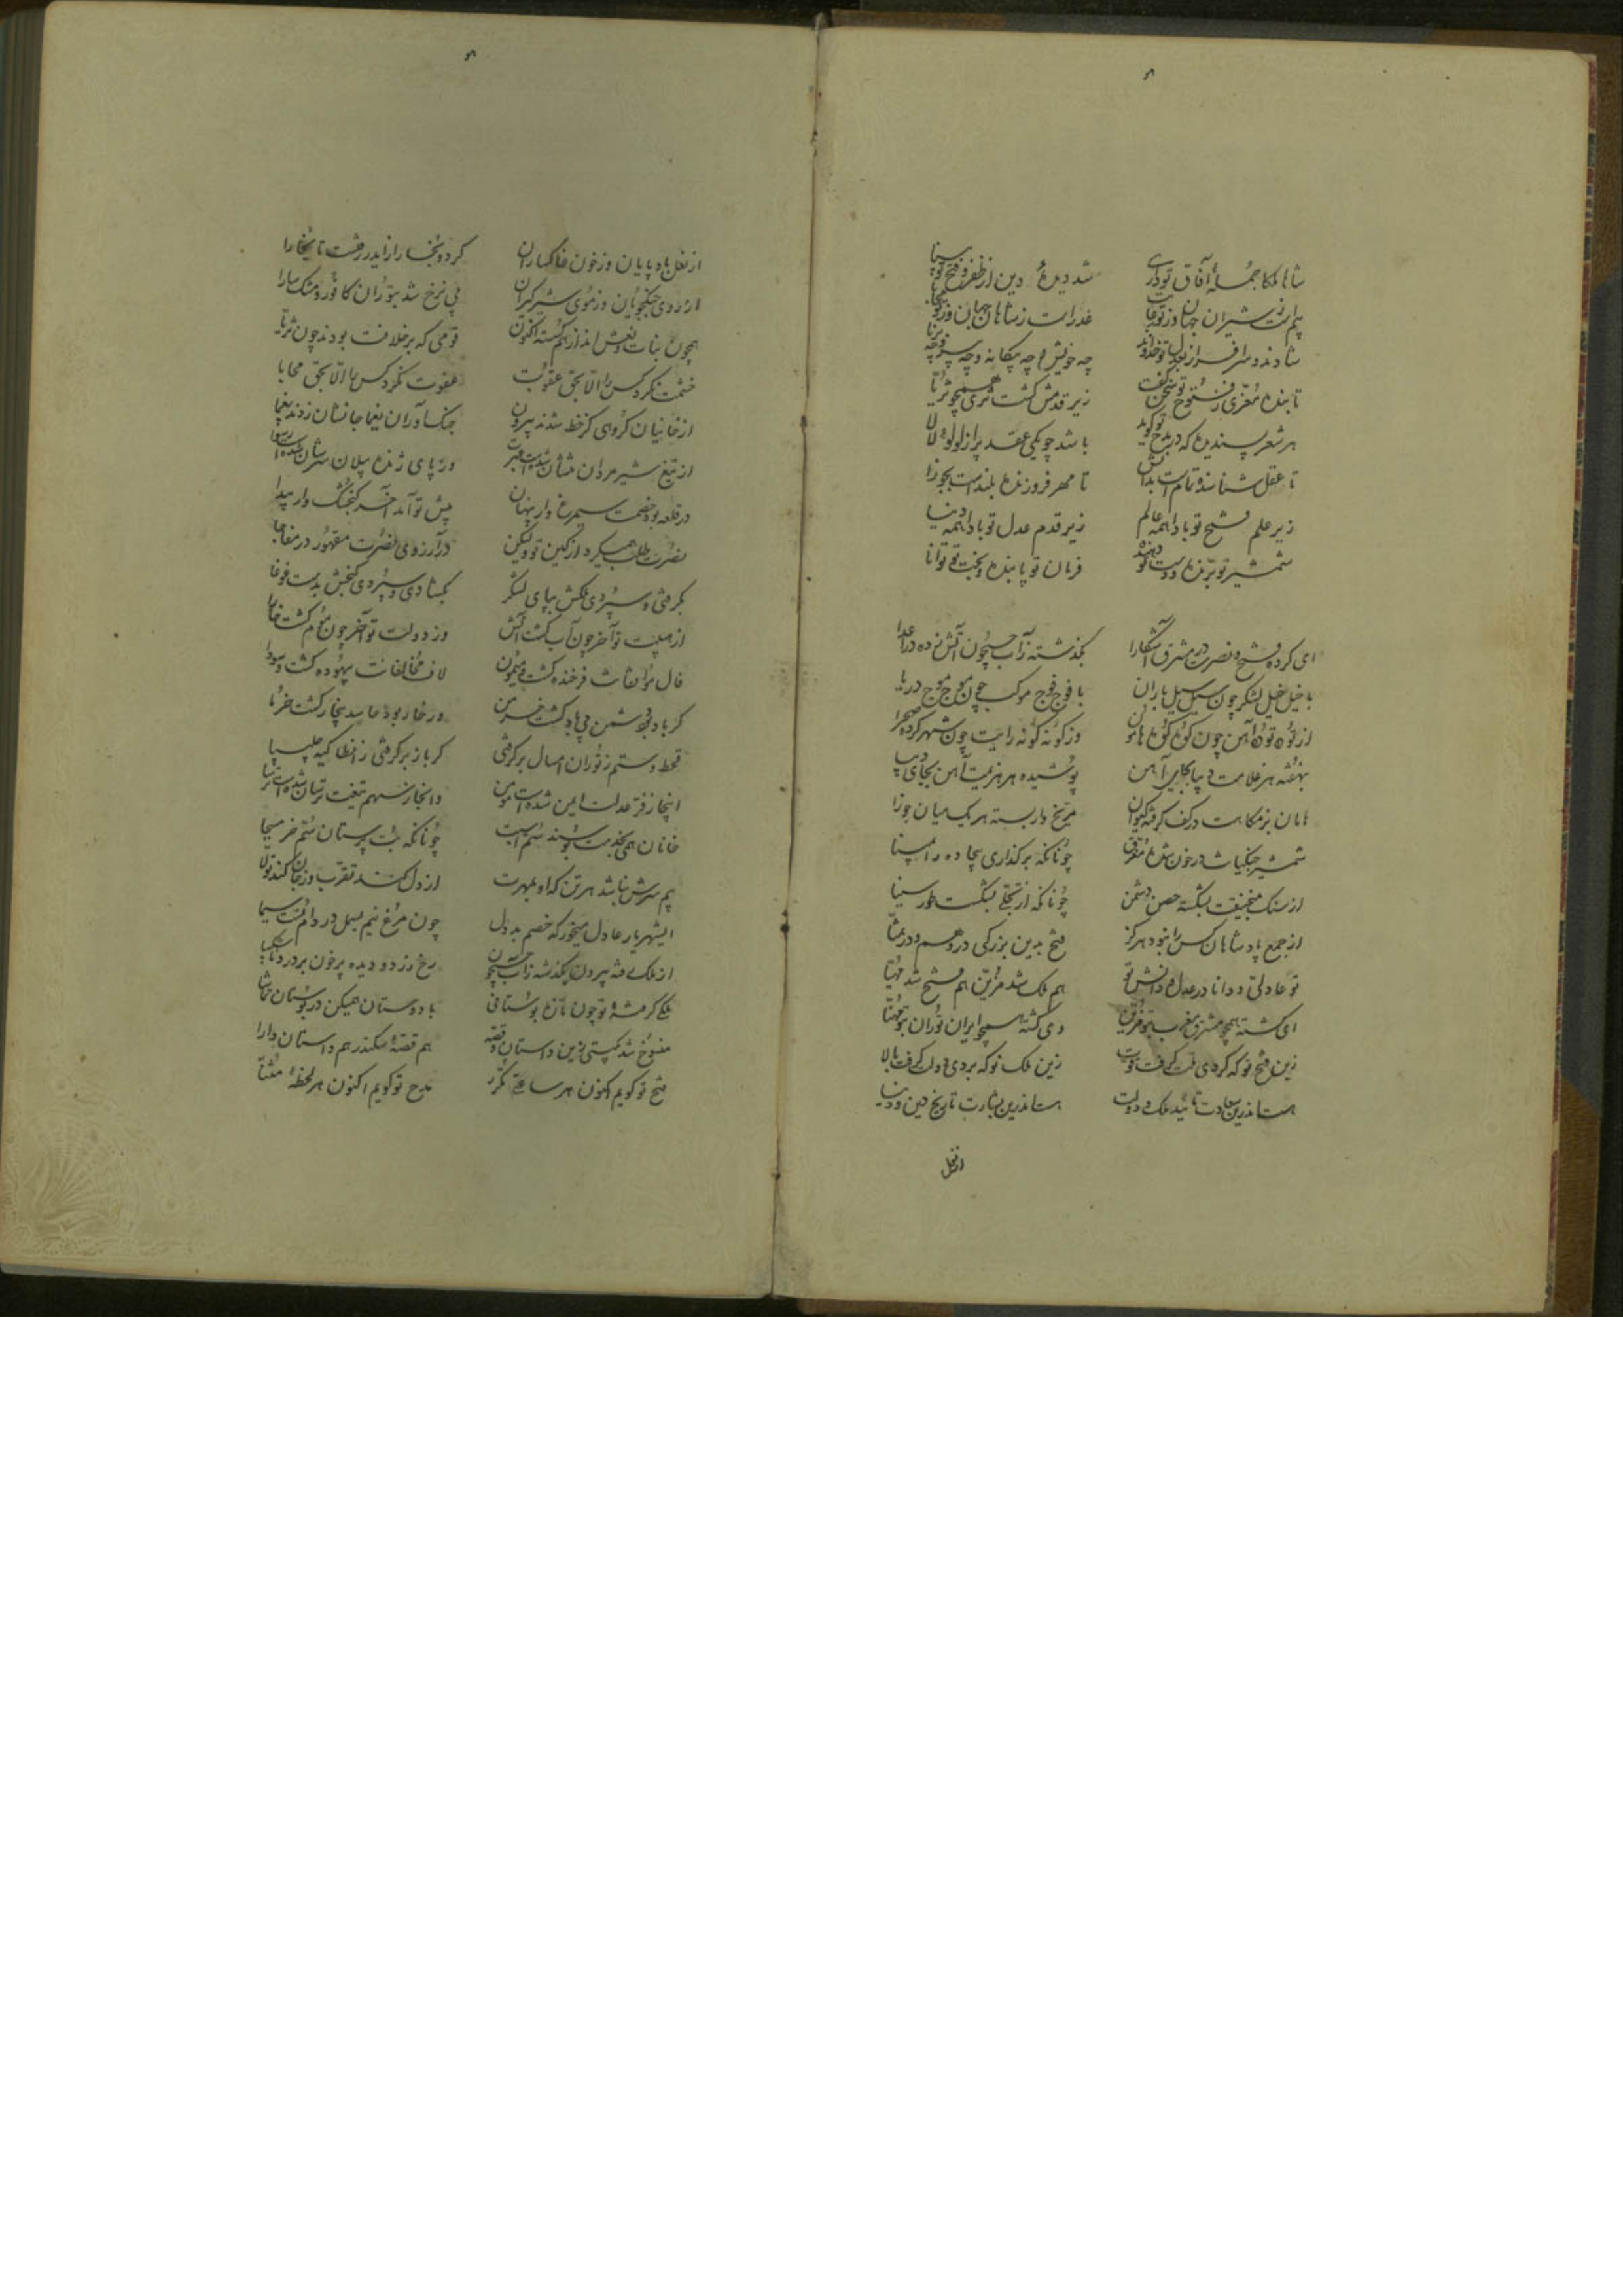 شاها ملکا جمله آفاق تو داری شد دیده دین از ظفر و فتح تو بینا
شیران جهان عدل است ز شاهان جهان
شادند و سرافراز چه خویش و چه بیگانه و چه پیر و چه برنا
تا بنده معزی ز فتوح تو سخن گفت زیر قدمش گشت ثری همچو ثریا
هر شعر پسندیده که در مدح تو گوید باشد چو یکی عقد پر از لولو لالا
تا عقل شناسنده تمام است بدانش تا مهر فروزنده بلند است بجوزا
زیر علم فتح تو بادا همه عالم زیر قدم عدل تو بادا همه دنیا
شمشیر تو برنده و دست تو دهنده فرمان تو پاینده و بخت تو توانا
ای کرده فتح و نصرت در مشرق آشکارا بگذشته ز آب جیحون آتش زده در اعدا
با خیل خیل لشکر چون سیل سیل باران با فوج فوج موکب چون موج موج دریا
از توده توده آهن چون کوه کوه هامون وز گونه گونه رایت چون شهر کرده صحرا
بنهفته هر غلامت دیبا بجای آهن پوشیده هر هزیمت آهن بجای دیبا
ماهان بزمگاهت در کف گرفته کیوان مریخ وار بسته هر یک میان جوزا
شمشیر جنگیانت در خون شده مغرق چونانکه برگذاری بیجاده را به مینا
از سنگ منجنیقت بشکسته حصن دشمن چونانکه از تجلی بشکست طور سینا
از جمع پادشاهان کس را نبود هرگز فتح بدین بزرگی در وهم و در تمنا
تو عادلی و دانا در عدل و دانش تو هم ملک شد مزین هم فتح شد مهیا
ای گشته همچو مشرق مغرب بتو مزین وی گشته همچو ایران توران بتو مهنا
زین فتح نو که کردی ملت گرفت قوت زین ملک نو که بردی دولت گرفت بالا
هست اندرین سعادت تائید ملک و دولت هست اندرین بشارت تاریخ دین و دنیا
از نعل
از نعل بادپایان وز خون خاکساران کردی بخار را از ایدر رفشت تا بخارا
از روی جنگجویان وز موی شیرگیران بی نرخ شد بتوران کافور و مشک سارا
همچون بنات نعش اند از هم گسسته اکنون قومی که بر خلافت بودند چون ثریا
خشمت نکرد کس را الا بحق عقوبت عفوت نکرد کس را الا بحق محابا
از خانیان گروهی کز خط شدند بیرون جنگ آوران یغما جانشان زدند یغما
از تیغ شیر مردان تنشان شده است عبرت در پای ژنده پیلان سرشان شده است رسوا
در قلعه بود خصمت سیمرغ وار پنهان پیش تو آمد آخر گنجشک وار پیدا
نصرت طلب همیکرد از کین تو ولیکن در آرزوی نصرت مقهور در مفاجا
بگرفتی و سپردی ملکش بپای لشکر بگشادی و سپردی گنجش بدست غوغا
از هیبت تو آخر چون آب گشت آتش وز دولت تو آخر چون موم گشت خارا
فال موافقانت فرخنده گشت و میمون لاف مخالفانت بیهوده گشت و سودا
گر باد بود دشمن بی باد گشت خرمن ور خار بود حاسد بیخار گشت خرما
قحط و ستم ز توران امسال برگرفتی گر باز برگرفتی ز انطاکیه چلیپا
اینجا ز فر عدلت ایمن شده است مومن وآنجا ز سهم تیغت ترسان شده است ترسا
خانان همی بخدمت بوسند سم اسبت چونانکه بت پرستان سم خر مسیحا
بیم سرش نباشد هر تن که او بمهرت از دل کند تقرب وز جان کند تولا
ای شهریار عادل میخور که خصم بد دل چون مرغ نیم بسمل در دام تست
از ملک شده بیرون بگذشته ز آب جیحون رخ زرد و دیده پر خون پر درد و ناشکیبا
ملک گرفته تو چون تازه بوستانی با دوستان همیکن در بوستان تماشا
منسوخ شد بگیتی زین داستان و قصه هم قصه سکندر هم داستان دارا
فتح تو گویم اکنون هر ساعتی مکرر مدح تو گویم اکنون هر لحظه مثنا